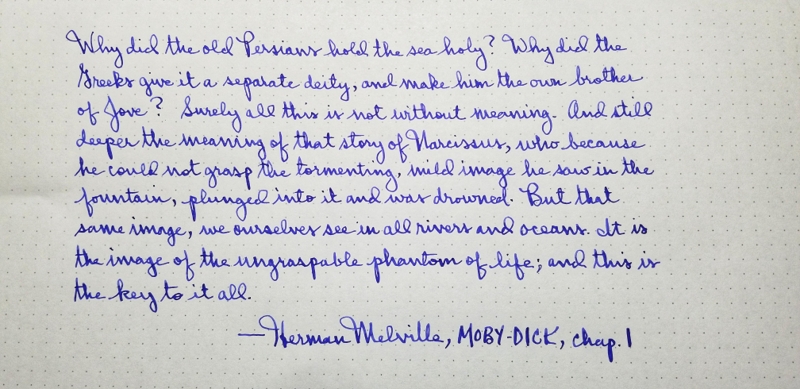 Why did the old Persians hold the sea holy? Why did the
Greeks give it a separate deity, and make him the own brother
of Jove? Surely all this is not without meaning. And still
deeper the meaning of that story of Narcissus, who because
he could not grasp the tormenting, mild image he saw in the
fountain, plunged into it and was drowned. But that
same image, we ourselves see in all rivers and oceans. It is
the image of the ungraspable phantom of life; and this is
the key to it all.
—Herman Melville, MOBY-DICK, chap. 1